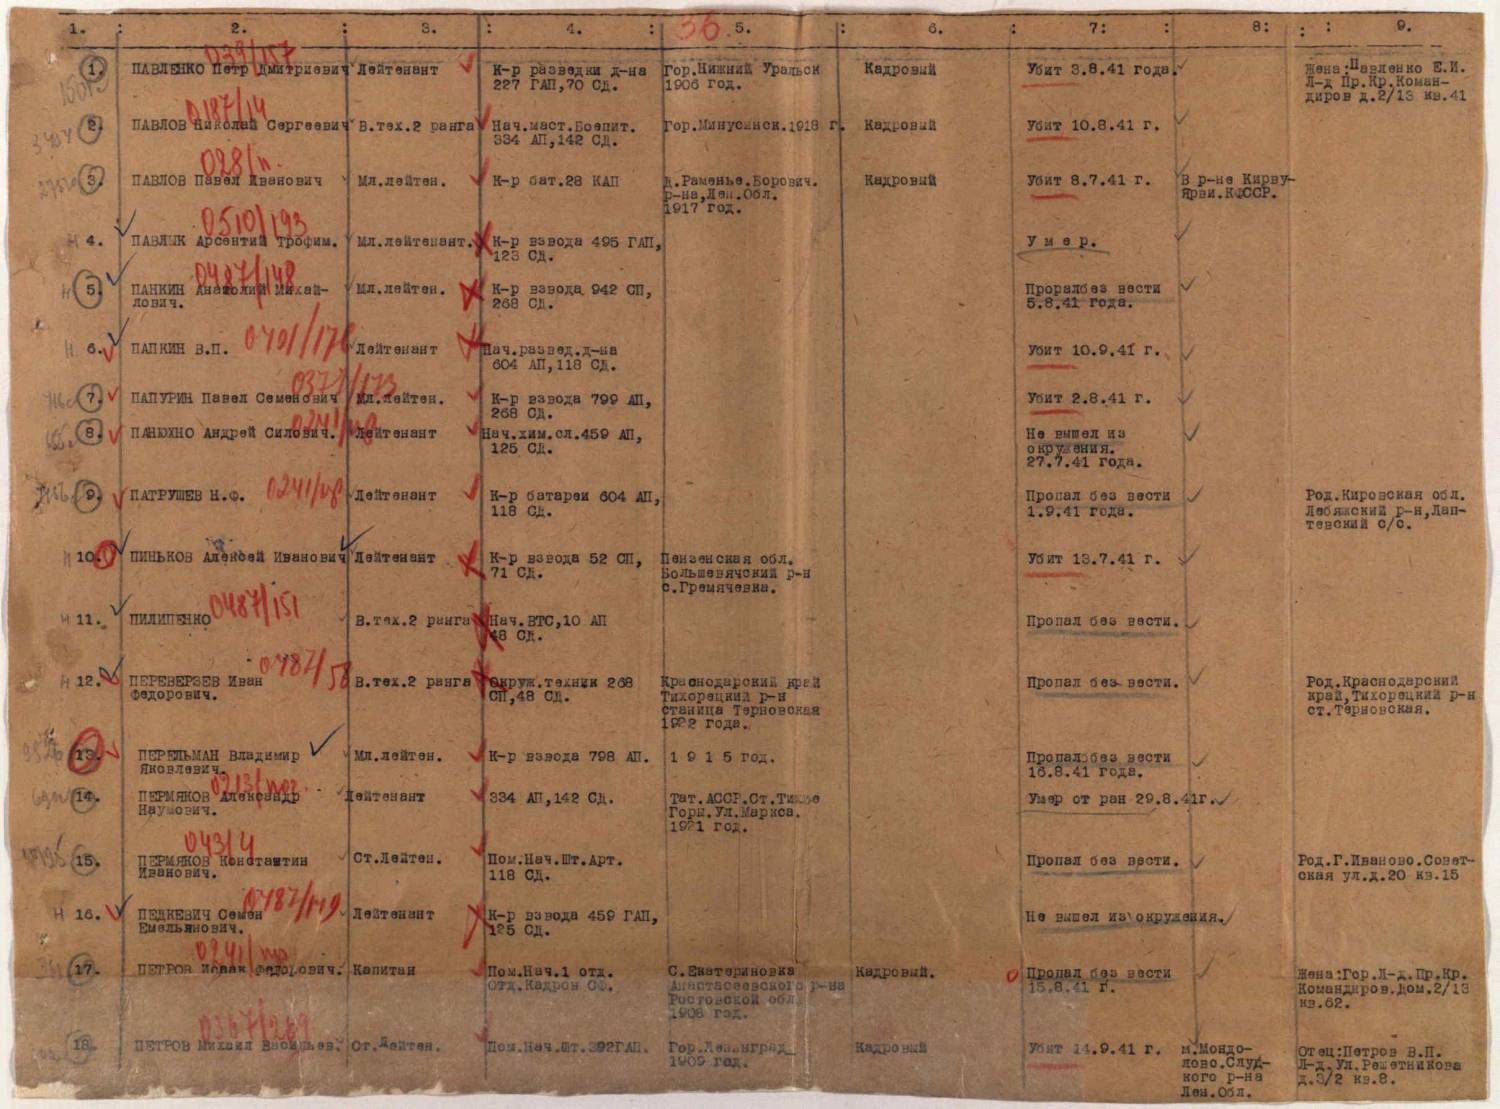 1. : 2. : 3. : 4. : 5. : 6. : 7: : 8: : : 9.
36.
039/157
1. ПАВЛЕНКО Петр Дмитриевич Лейтенант К-р разведки д-на Гор.Нижний Уральск Кадровый Убит 3.8.41 года. Жена:Павленко Е.И.
227 ГАП,70 СД. 1906 год. Л-д Пр.Кр.Коман-
диров д.2/13 кв.41
0187/14
2. ПАВЛОВ Николай Сергеевич В.тех.2 ранга Нач.маст.Боепит. Гор.Минусинск.1918 г. Кадровый Убит 10.8.41 г.
334 АП,142 СД.
028/п.
3. ПАВЛОВ Павел Иванович Мл.лейтен. К-р бат.28 КАП д.Раменье.Борович. Кадровый Убит 8.7.41 г. В р-не Кирву-
р-на,Лен.Обл. Ярви.КФССР.
1917 год.
0510/193
н 4. ПАВЛЫК Арсентий Трофим. Мл.лейтенант. К-р взвода 495 ГАП, У м е р.
123 СД.
0487/148
н 5. ПАНКИН Анатолий Михай- Мл.лейтен. К-р взвода 942 СП, Проралбез вести
лович. 268 СД. 5.8.41 года.
н 6. ПАПКИН В.П. 0401/176 Лейтенант Нач.развед.д-на Убит 10.9.41 г.
604 АП,118 СД.
0377/173
7. ПАПУРИН Павел Семенович Мл.лейтен. К-р взвода 799 АП, Убит 2.8.41 г.
268 СД.
8. ПАНЮХНО Андрей Силович. Лейтенант Нач.хим.сл.459 АП, Не вышел из
125 СД. окружения.
27.7.41 года.
9. ПАТРУШЕВ Н.Ф. Лейтенант К-р батареи 604 АП, Пропал без вести Род.Кировская обл.
118 СД. 1.9.41 года. Лебяжский р-н,Лап-
тевский с/с.
н 10. ПИНЬКОВ Алексей Иванович Лейтенант К-р взвода 52 СП, Пензенская обл. Убит 13.7.41 г.
71 СД. Большевячский р-н
с.Гремячевка.
0487/151
н 11. ПИЛИПЕНКО В.тех.2 ранга Нач.ВТС,10 АП Пропал без вести.
48 СД.
0487/58
н 12. ПЕРЕВЕРЗЕВ Иван В.тех.2 ранга Окруж.техник 268 Краснодарский край Пропал без вести. Род.Краснодарский
Федорович. СП,48 СД. Тихорецкий р-н край,Тихорецкий р-н
станица Терновская ст.Терновская.
1922 года.
13. ПЕРЕЛЬМАН Владимир Мл.лейтен. К-р взвода 798 АП. 1 9 1 5 год. Пропал без вести
Яковлевич. 16.8.41 года.
14. ПЕРМЯКОВ Александр Лейтенант 334 АП,142 СД. Тат.АССР.Ст. Умер от ран 29.8.41г.
Наумович. Горн.Ул.Маркса.
1921 год.
043/4
15. ПЕРМЯКОВ Константин Ст.Лейтен. Пом.Нач.Шт.Арт. Пропал без вести. Род.Г.Иваново.Совет-
Иванович. 118 СД. ская ул.д.20 кв.15
0487/149
н 16. ПЕДКЕВИЧ Семен Лейтенант К-р взвода 459 ГАП, Не вышел из окружения.
Емельянович. 125 СД.
17. ПЕТРОВ Исаак Федорович. Капитан Пом.Нач.1 отд. С.Екатериновка Кадровый. Пропал без вести Жена:Гор.Л-д.Пр.Кр.
Отд.Кадров СФ. Анастасеевского р-на 15.8.41 г. Командиров.Дом.2/13
Ростовской обл. кв.62.
1908 год.
0367/269
18. ПЕТРОВ Михаил Васильев. Ст.Лейтен. Пом.Нач.Шт.392ГАП. Гор.Ленинград Кадровый Убит 14.9.41 г. м.Мондо- Отец:Петров В.П.
1909 год. лово.Слуд- Л-д.Ул.Решетникова
кого р-на д.3/2 кв.8.
Лен.Обл.